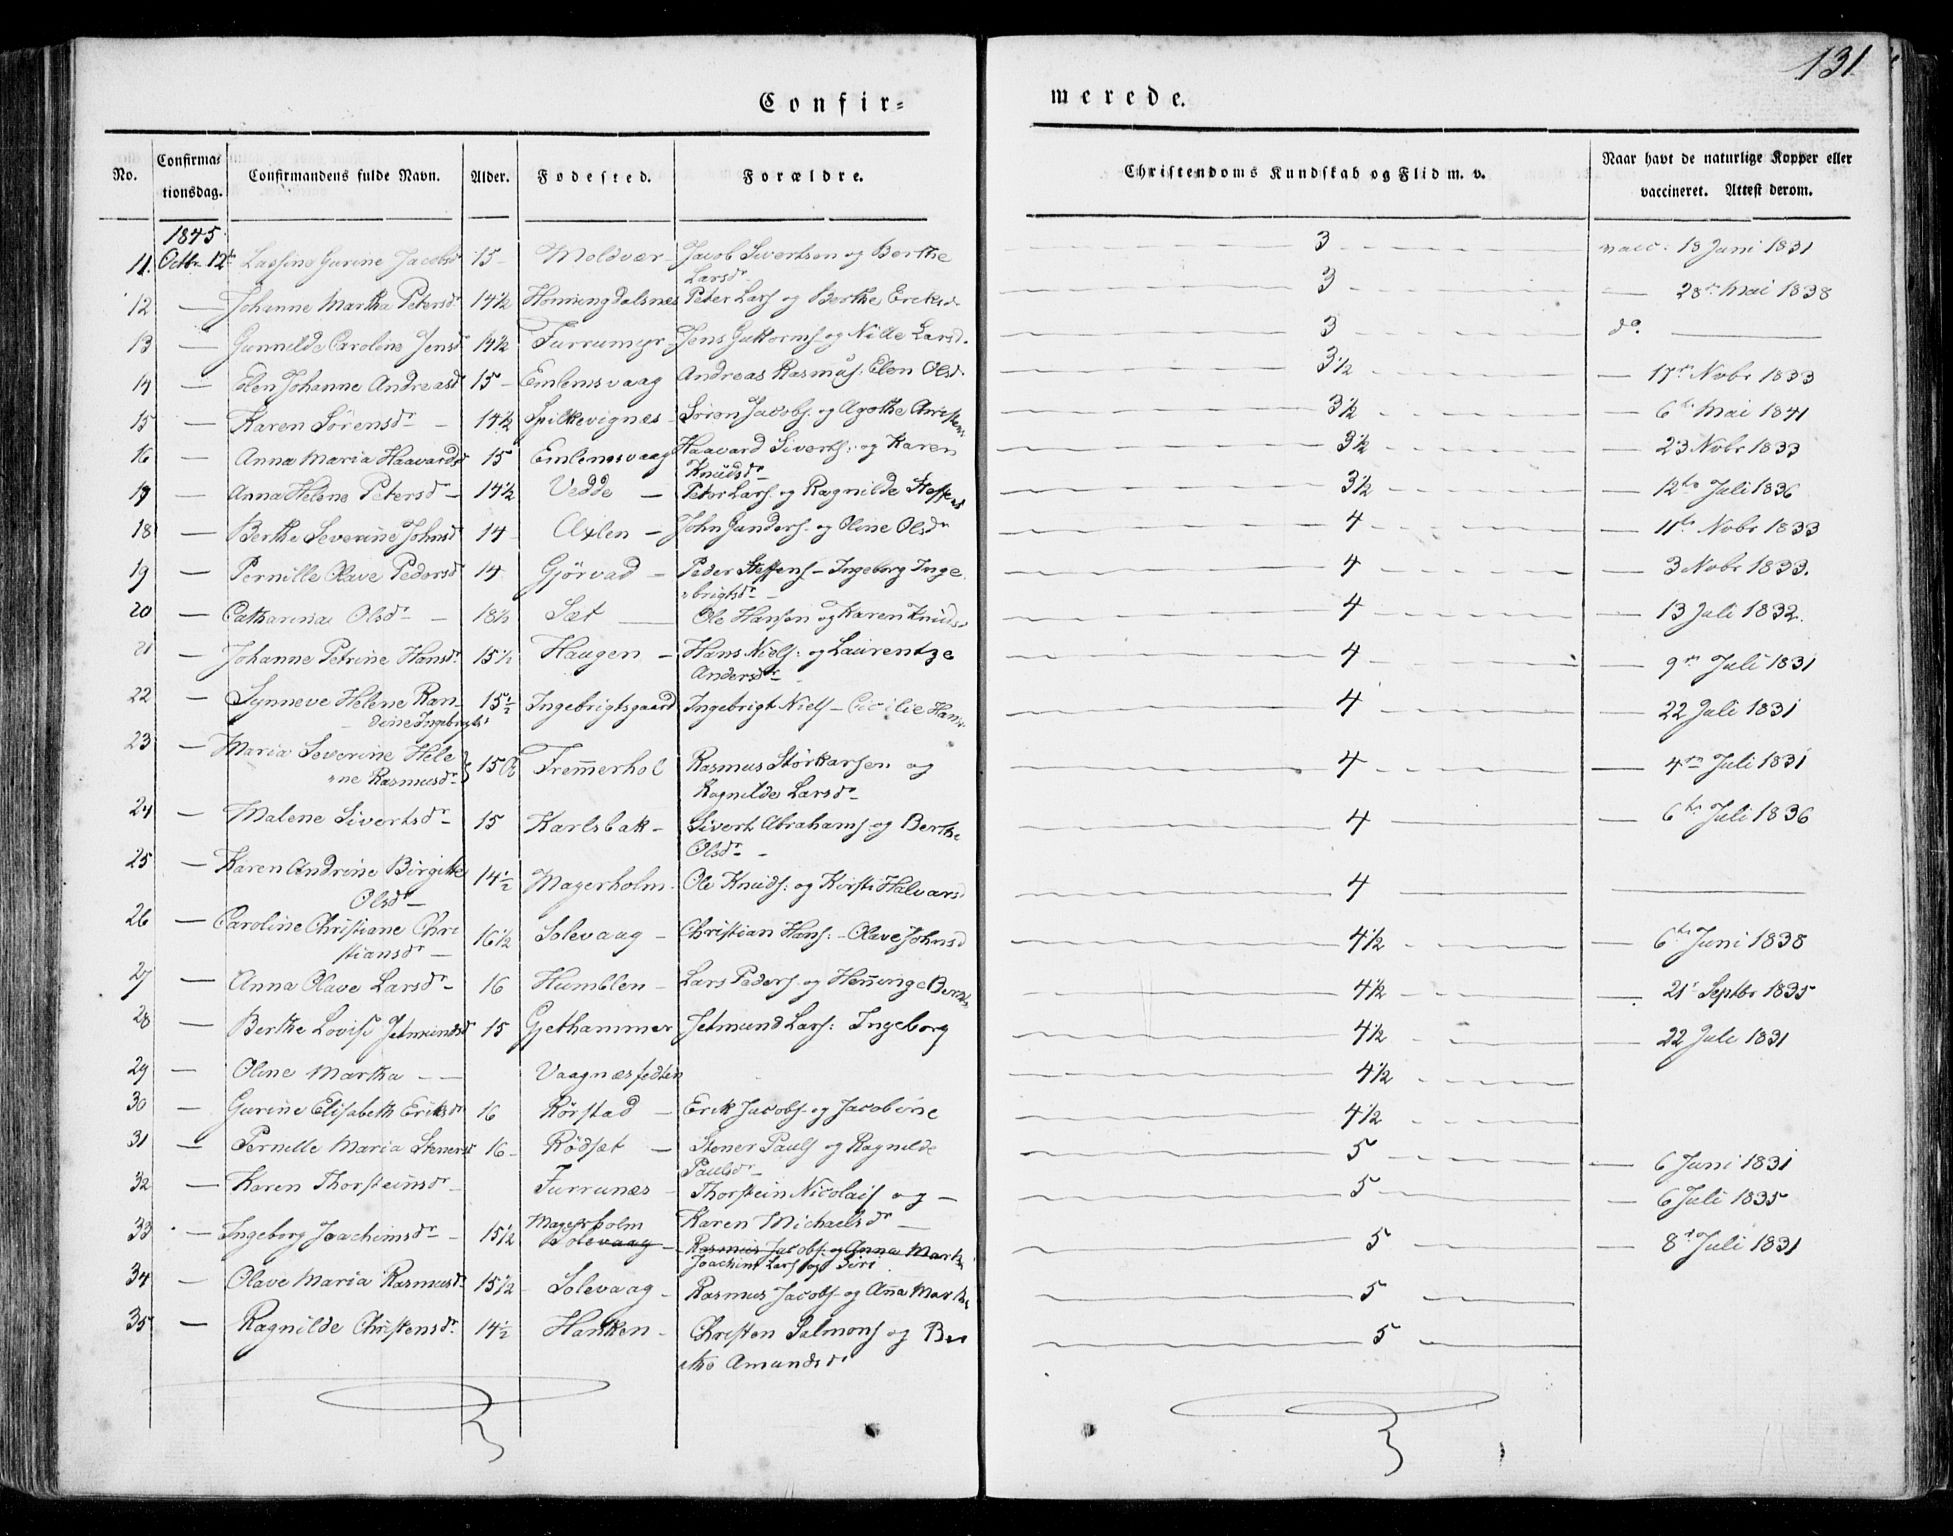 131.
Confir=
merede.
No.
Confirma=
tionsdag.
Confirmandens fulde Navn.
Alder.
Fødested.
Forældre.
Christendoms Kundskab og Flid m. v.
Naar havt de naturlige Kopper eller
vaccineret. Attest derom.
1845
11. Octbr 12te Gurine Jacobsdr 15 – Moldvær – Jacob Sivertsen og Berthe 3 vacc: 18 Juni 1831
Larsdr
12 — Johanne Martha Petersdr 14½ Honningdalsnes Peter Lars: og Berthe Eriksd. 3 — 28de Mai 1838
13 — Gunnilde Caroline Jensd 14½ Furrumyr – Jens Guttorms: og Nille Larsd. 3 do. —
14 — Elen Johanne Andreasd 15 – Emlemsvaag Andreas Rasmus: Elen Olsd. 3½ — 17de Nobr 1833
15 — Karen Sørensdr – 14½ Spilkevignæs – Søren Jacobs: og Agothe Christens 3½ — 6te Mai 1841
16 — Anna Maria Haavardsd 15 Emlemsvaag Haavard Siverts: og Karen 3½ — 23 Nobr 1833
Knudsdr
17 — Anna Helene Petersd – 14½ Vedde — Peter Lars: og Ragnilde Steffens 3½ — 12te Juli 1836
18 — Berthe Severine Johnsd 14 Axlen – John Gunders: og Oline Olsdr 4 — 11te Nobr 1833
19 — Pernille Olave Pedersd 14 Gjørvad – Peder Steffens – Ingeborg Inge 4 — 3 Nobr 1833.
brigtsdr –
20 — Catharina Olsdr – 18½ Sæt — Ole Hansen og Karen Knuds 4 — 13 Juli 1832.
21 — Johanne Petrine Hansdr 15½ Haugen – Hans Niels: og Laurentze 4 — 9de Juli 1831
Andersdr –
22 — Synneve Helene Ran– 15½ Ingebrigtsgaard Ingebrigt Niels – Cicilie Hans 4 — 22 Juli 1831
dine Ingebrigts
23 — Maria Severine Hele
ne Rasmusdr 15½ Fremmerhol Rasmus Storkarsen og 4 — 4de Juli 1831
Ragnilde Larsdr
24 — Malene Sivertsdr – 15 Karlsbak – Sivert Abrahams: og Berthe 4 — 6te Juli 1836
Olsdr –
25 — Karen Andrine Birgitte 14½ Magerholm – Ole Knuds: og Kirsti Halvars 4 —
Olsdr –
26 — Caroline Christiane Chri 16½ Solevaag – Christian Hans: – Olave Johnsd 4½ — 6te Juni 1838
stiansdr –
27 — Anna Olave Larsdr – 16 Humblen – Lars Peders: og Henninge Bernts 4½ — 21 Septbr 1835
28 — Berthe Lovise Jetmundsd 15 Gjethammer Jetmund Lars: Ingeborg 4½ — 22 Juli 1831
29 — Oline Martha – – Vaagnæsfedten 4½
30 — Gurine Elisabeth Eriksdr 16 Rørstad – Erik Jacobs: og Jacobine 4½
31 — Pernille Maria Steners 16 – Rødset — Stener Pauls og Ragnilde 5 — 6 Juni 1831
Paulsdr –
32 — Karen Thorsteinsdr – Furrunæs – Thorstein Nicolais og – 5 — 6 Juli 1835
Karen Michaelsdr –
33 — Ingeborg Joachimsdr – 15½ Magerholm Solevaag – Rasmus Jacobs: og Anna Marth 5 — 8de Juli 1831
Joachim Lars og Siri
34 — Olave Maria Rasmusd 15½ – Solevaag – Rasmus Jacobs: og Anna Marth 5
35 — Ragnilde Christensdr 14½ Hanken – Christen Salmons og Be 5
rthe Amundsdr